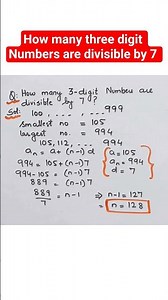 How many three digit
Numbers are divisible by 7
Q: How many 3-digit Numbers are
divisible by 7?
Sol: 100, ...., ...., 999
smallest no = 105
largest no. = 994
105, 112, .... 994
aₙ = a + (n-1) d
994 = 105 + (n-1) 7
994 - 105 = (n-1) 7
889 = (n-1) 7
889/7 = n-1
a = 105
aₙ = 994
d = 7
⇒ n-1 = 127
⇒ n = 128